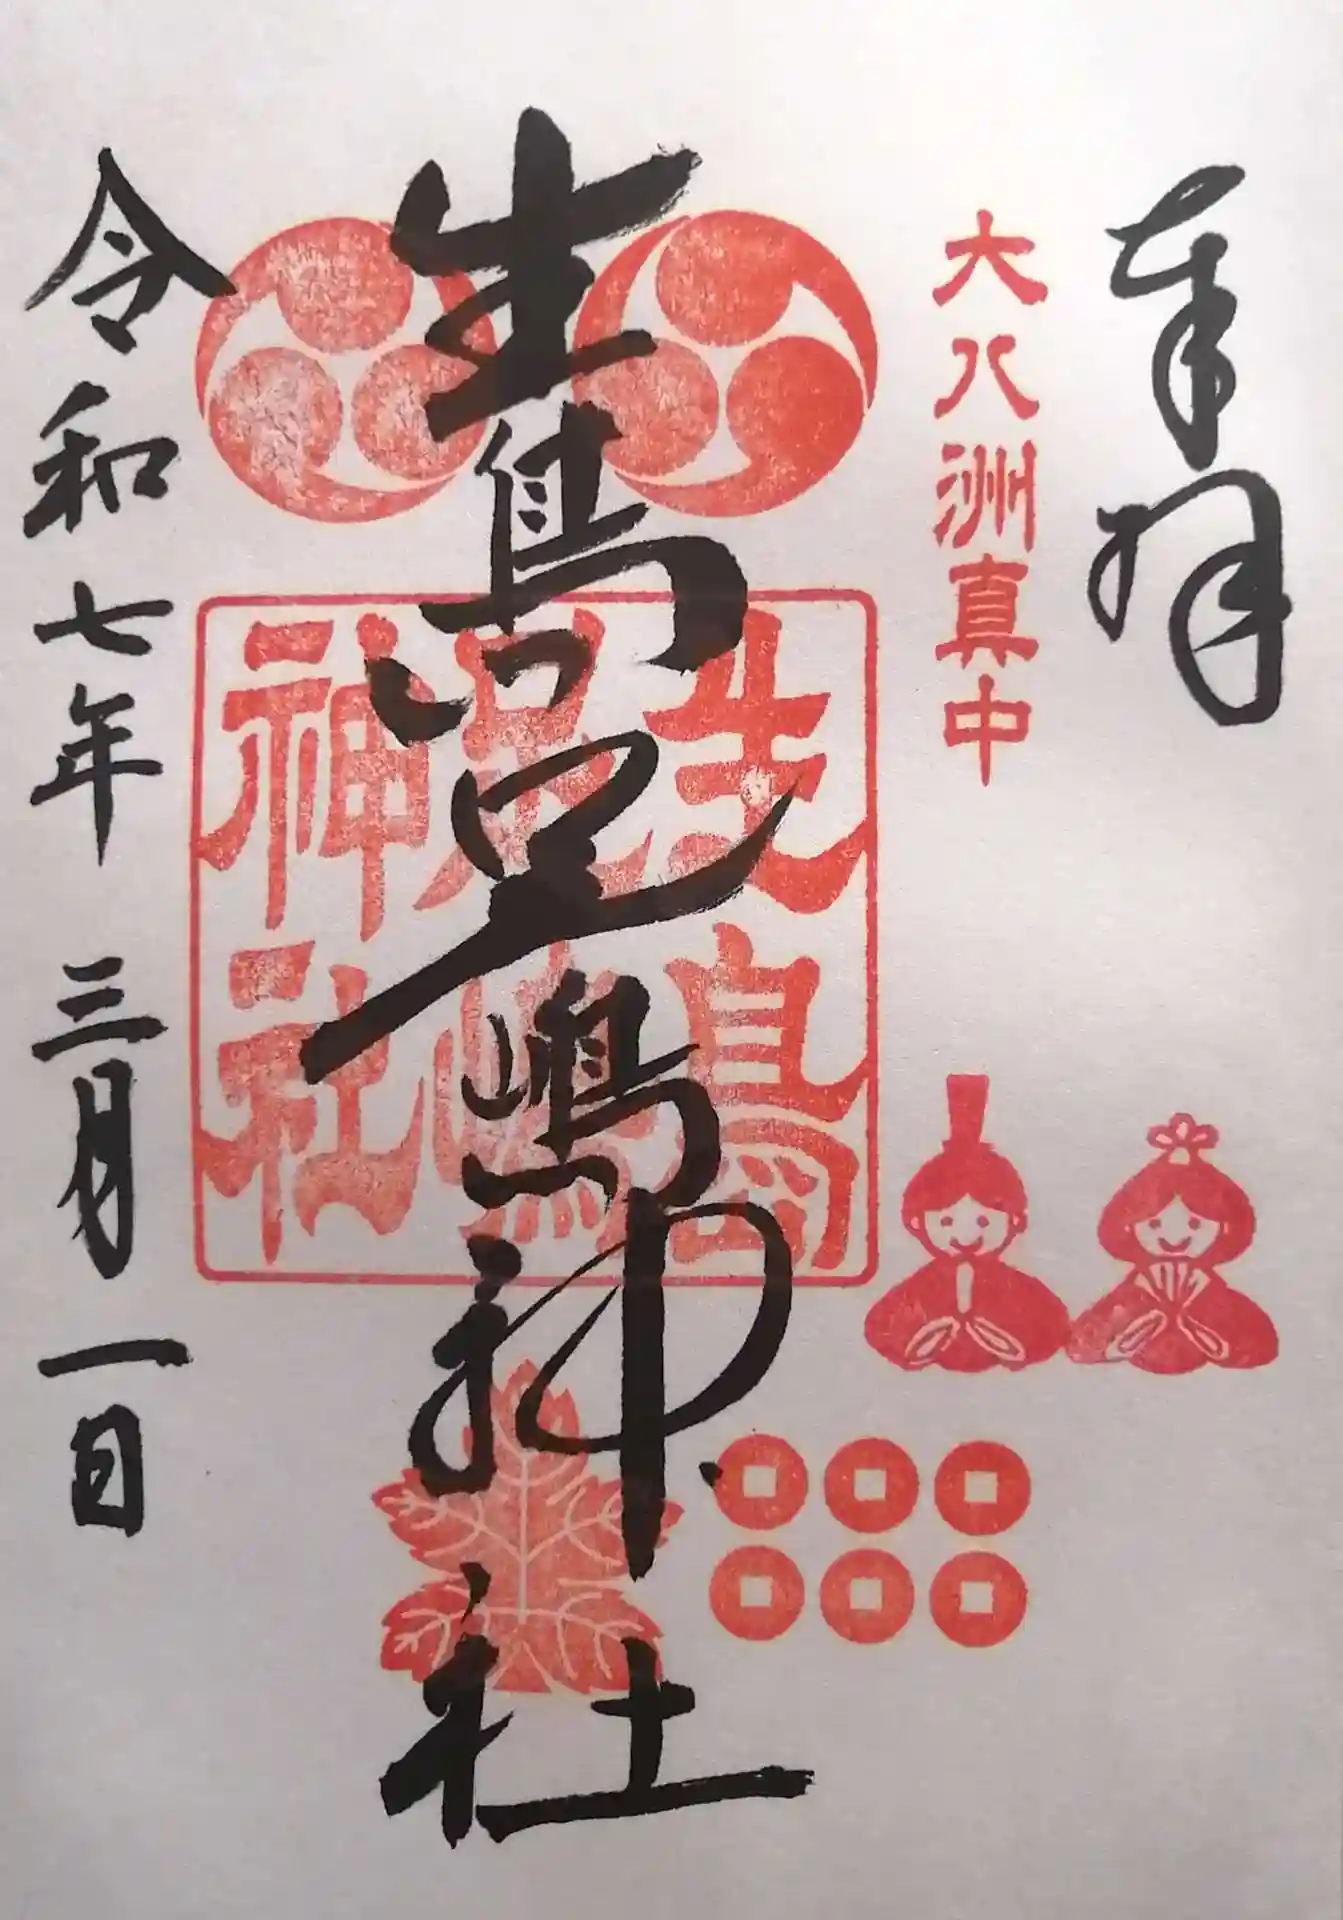 奉拝
大八洲真中
生島足嶋神社
生島足嶋神社
令和七年三月一日